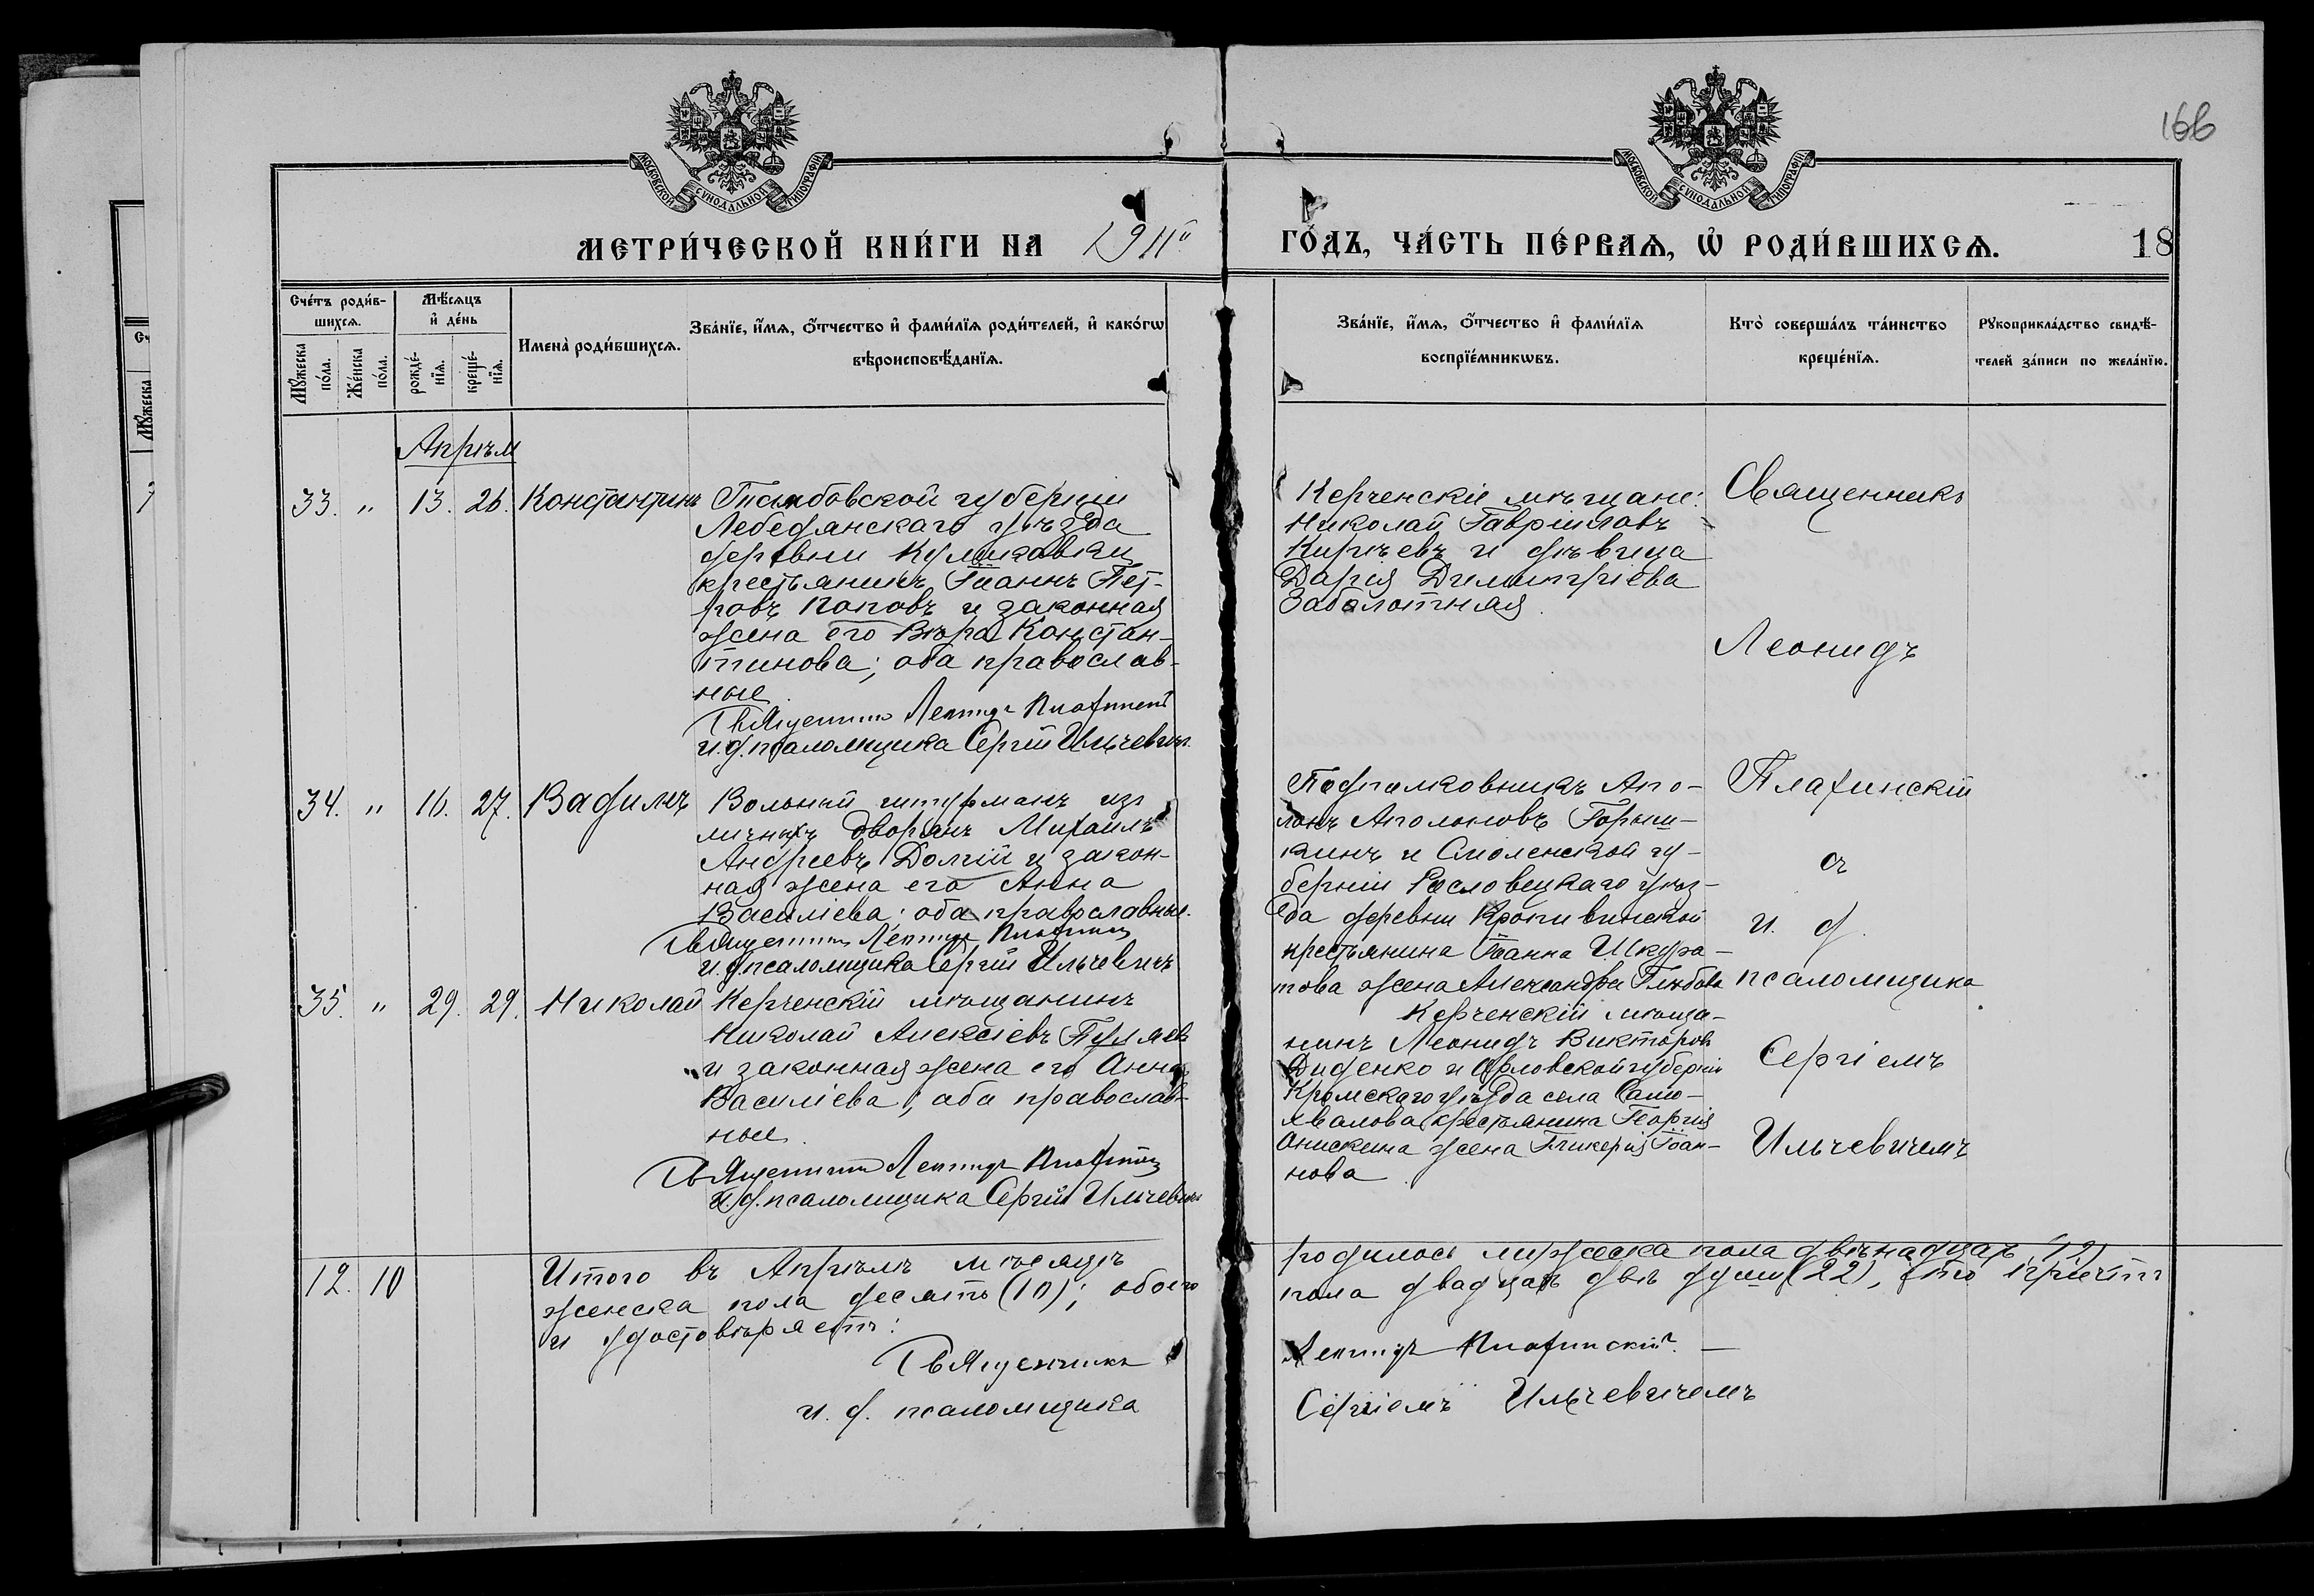 166
МОСКОВСКОЙ СѴНОДАЛЬНОЙ ТИПОГРАФІИ
МОСКОВСКОЙ СѴНОДАЛЬНОЙ ТИПОГРАФІИ
МЕТРИ́ЧЕСКОЙ КНИ́ГИ НА 1911й ГО́ДЪ, ЧА́СТЬ ПЕ́РВАѦ, Ѡ҆ РОДИ́ВШИХСѦ. 18
Сче́тъ роди́в-
шихсѧ.
Мꙋ́жеска по́ла.
Же́нска по́ла.
Мѣ́сѧцъ
и҆ де́нь
рожде́-
нїѧ.
креще́-
нїѧ.
Имена̀ роди́вшихсѧ.
Зва́нїе, и҆́мѧ, ѻ҆́тчество и҆ фами́лїѧ роди́телей, и҆ како́гѡ
вѣроисповѣ́данїѧ.
Зва́нїе, и҆́мѧ, ѻ҆́тчество и҆ фами́лїѧ
воспрїе́мникѡвъ.
Кто̀ соверша́лъ та́инство
креще́нїѧ.
Рꙋкоприкла́дство свидѣ́-
телей за́писи по жела́нїю.
Апрѣль
33. " 13. 26. Константинъ
Тамбовской губерніи
Лебедянскаго уѣзда
деревни Куликовки
крестьянинъ Іоаннъ Пет-
ровъ Поповъ и законная
жена его Вѣра Констан-
тинова; оба православ-
ные
Священникъ Леонидъ Платинскій
и. д. псаломщика Сергій Ильчевичъ.
Керченскіе мѣщане:
Николай Гавріиловъ
Кирѣевъ и дѣвица
Дарія Димитріева
Заболотная.
Священникъ
Леонидъ
34. " 16. 27. Вадимъ
Вольный штурманъ изъ
личныхъ дворянъ Михаилъ
Андреевъ Долгій и закон-
ная жена его Анна
Василіева; оба православные.
Священникъ Леонидъ
и. д. псаломщика Сергій Ильчевичъ
Подполковникъ Апо-
лонъ Аполоновъ Горыш-
кинъ и Смоленской гу-
берніи Рословецкаго уѣз-
да деревни Кропивинской
крестьянина Іоанна Шкура-
това жена Александра Глѣбова
Платинскій
съ
и. д.
псаломщика
35. " 29. 29. Николай
Керченскій мѣщанинъ
Николай Алексіевъ Пуляевъ
и законная жена его Анна
Василіева; оба православ-
ные.
Священникъ Леонидъ
и. д. псаломщика Сергій Ильчевичъ
Керченскій мѣща-
нинъ Леонидъ Викторовъ
Диденко и Орловской губерніи
Кромскаго уѣзда села Само-
хвалова крестьянина Георгія
Онискина жена Гликерія Іоан-
нова
Сергіемъ
Ильчевичемъ
12. 10
Итого въ Апрѣлѣ мѣсяцѣ родилось мужеска пола двѣнадцать (12)
женска пола десять (10); обоего пола двадцать двѣ души (22), что
и удостовѣряетъ:
Священникъ Леонидъ Платинскій.
и. д. псаломщика Сергіемъ Ильчевичемъ